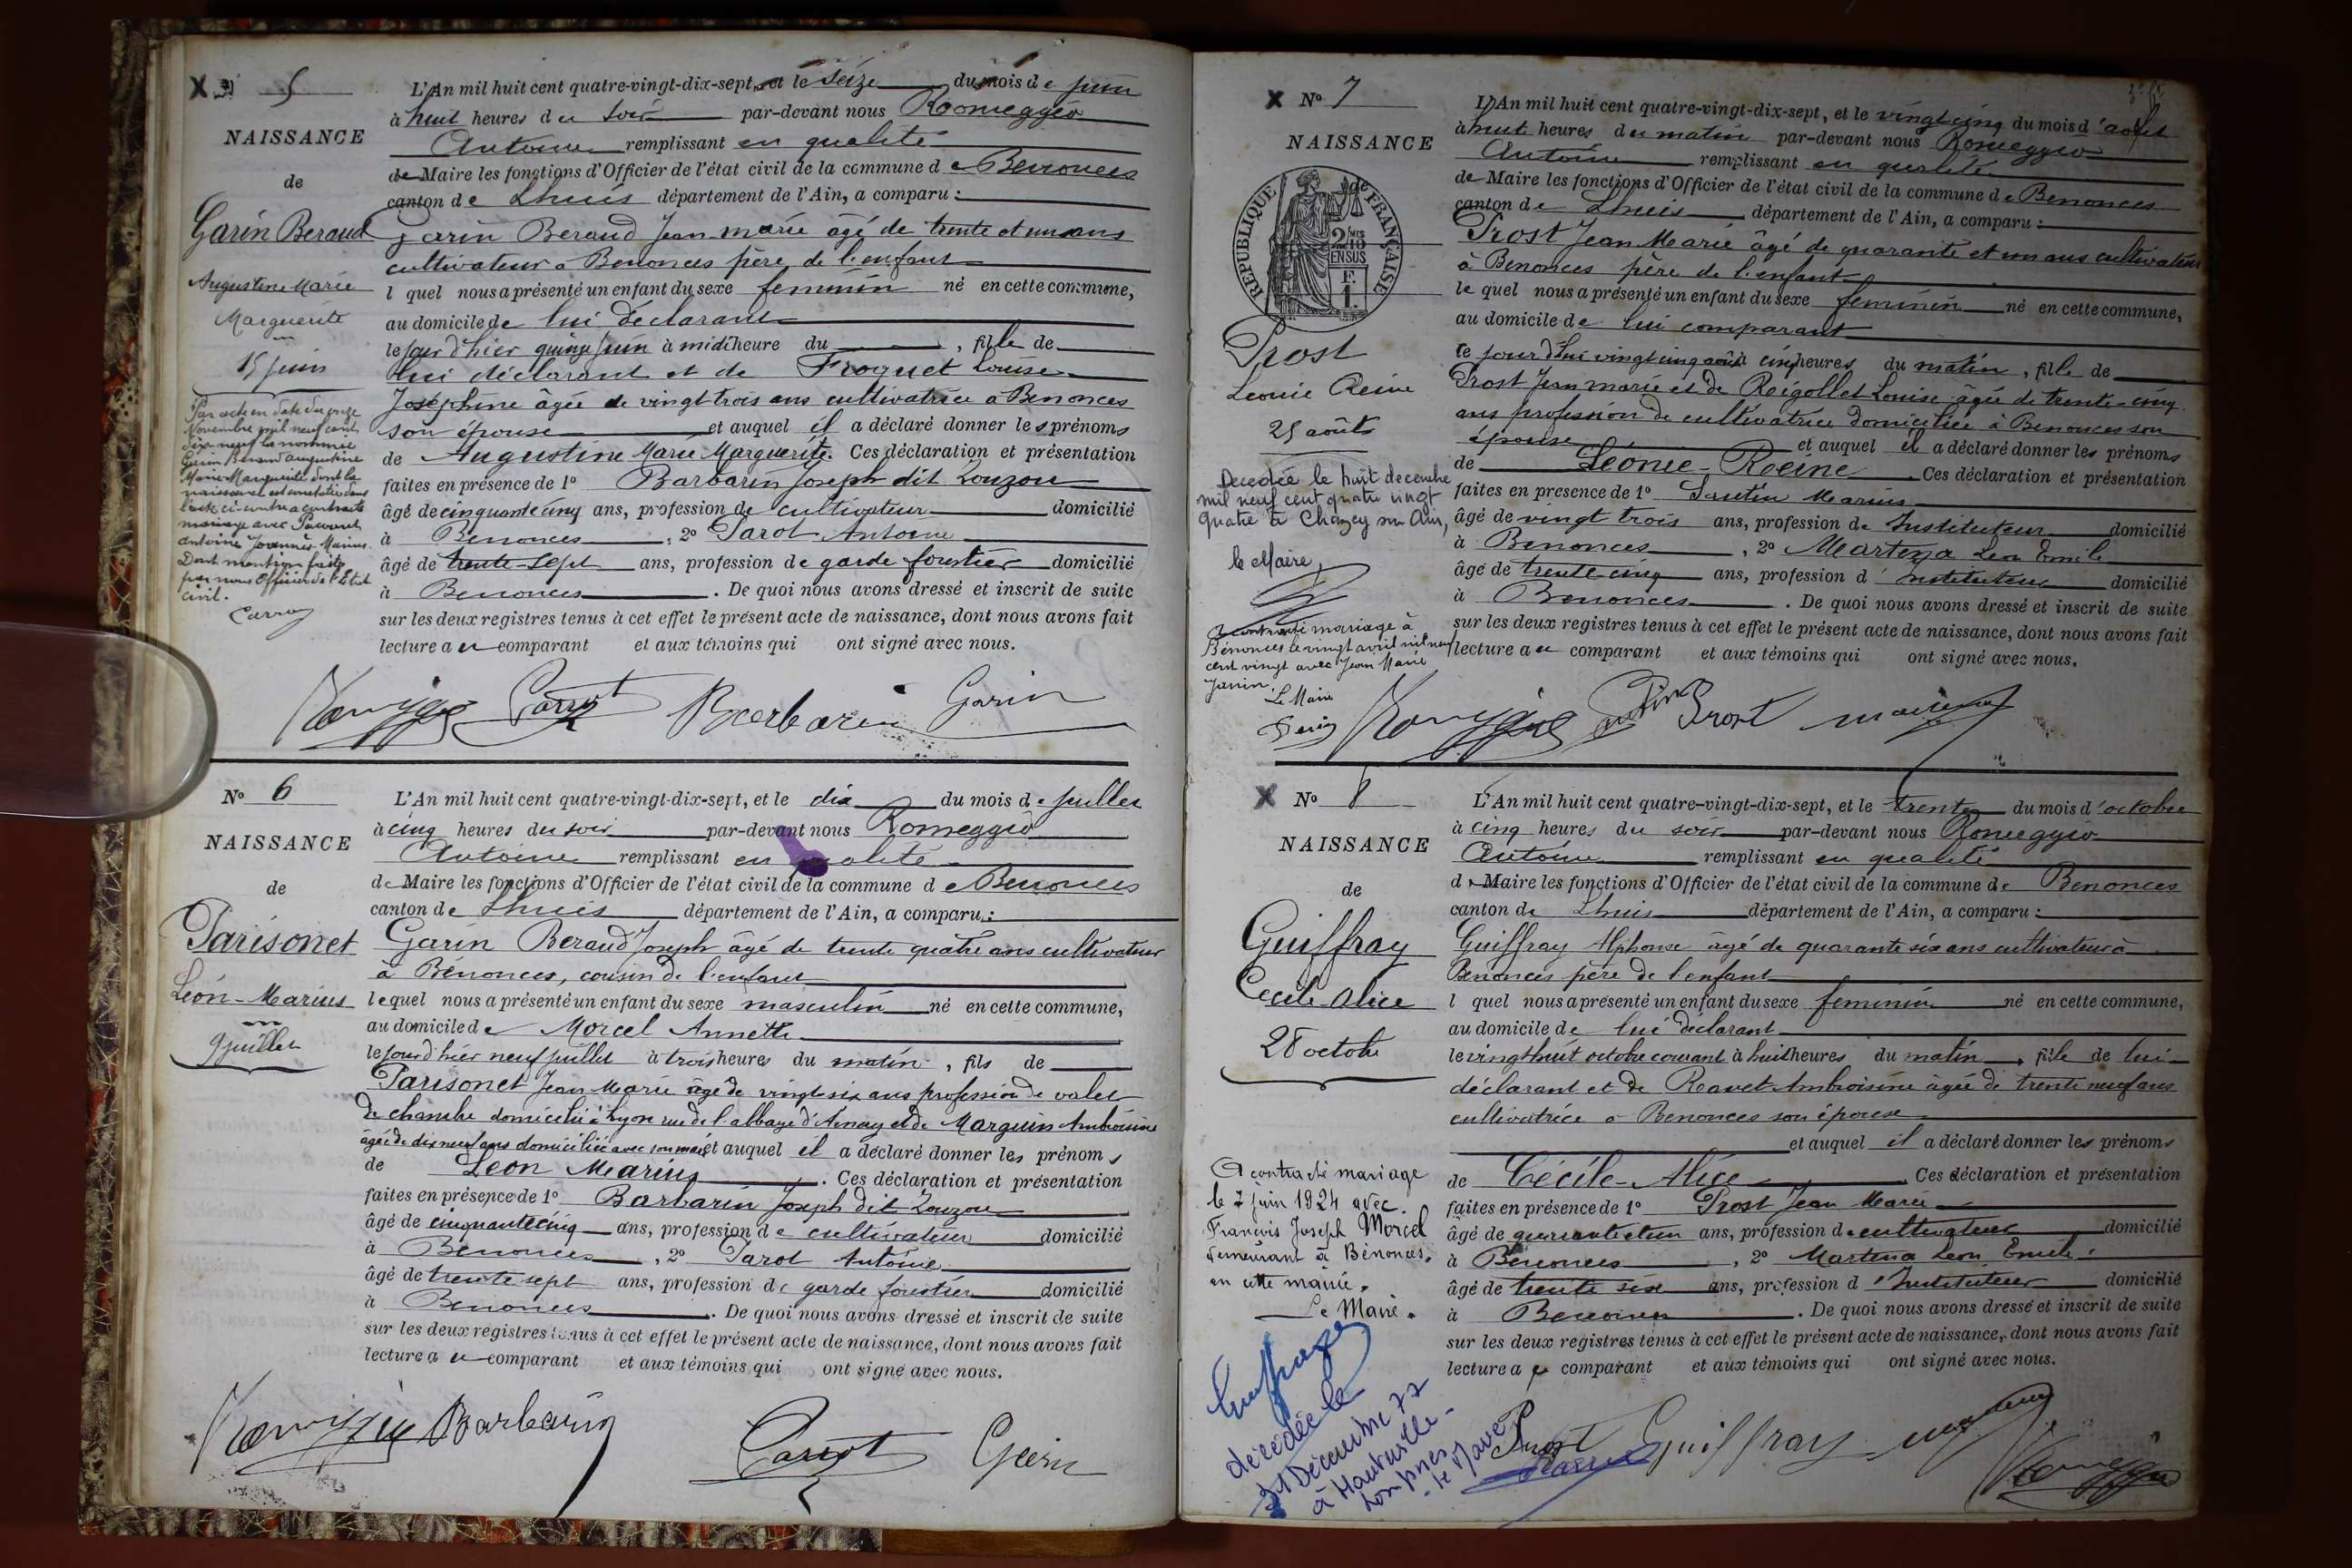 N° 5
NAISSANCE
de
Garin Beraud
Augustine Marie
Marguerite
15 juin
Par acte en date du onze
Novembre mil neuf cent
dix-neuf la nommée
Garin Beraud Augustine
Marie Marguerite dont la
naissance est constatée dans
l'acte ci-contre a contracté
mariage avec
antoine Joannès Marius.
Dont mention faite
par nous Officier de l'Etat
civil.
L'An mil huit cent quatre-vingt-dix-sept, et le seize du mois de juin
à huit heures du soir par-devant nous Romeggio
Antoine remplissant en qualité
de Maire les fonctions d'Officier de l'état civil de la commune de Benonces
canton de Lhuis département de l'Ain, a comparu :
Garin Beraud Jean marie âgé de trente et un ans
cultivateur à Benonces père de l'enfant
l quel nous a présenté un enfant du sexe feminin né en cette commune,
au domicile de lui déclarant
le jour d'hier quinze juin à midi heure du , fille de
lui déclarant et de Froquet Louise
Joséphine âgée de vingt-trois ans cultivatrice à Benonces
son épouse et auquel il a déclaré donner les prénoms
de Augustine Marie Marguerite. Ces déclaration et présentation
faites en présence de 1° Barbarin Joseph dit Zouzou
âgé de cinquante cinq ans, profession de cultivateur domicilié
à Benonces , 2° Parot Antoine
âgé de trente-sept ans, profession de garde forestier domicilié
à Benonces . De quoi nous avons dressé et inscrit de suite
sur les deux registres tenus à cet effet le présent acte de naissance, dont nous avons fait
lecture au comparant et aux témoins qui ont signé avec nous.
Romeggio Parrot Barbarin Garin
N° 6
NAISSANCE
de
Parisonet
Léon-Marius
9 juillet
L'An mil huit cent quatre-vingt-dix-sept, et le dix du mois de juillet
à cinq heures du soir par-devant nous Romeggio
Antoine remplissant en qualité
de Maire les fonctions d'Officier de l'état civil de la commune de Benonces
canton de Lhuis département de l'Ain, a comparu :
Garin Beraud Joseph âgé de trente quatre ans cultivateur
à Bénonces, cousin de l'enfant
lequel nous a présenté un enfant du sexe masculin né en cette commune,
au domicile de Morcel Annette
le jour d'hier neuf juillet à trois heures du matin , fils de
Parisonet Jean Marie âgé de vingt six ans profession de valet
de chambre domicilié à Lyon rue de l'abbaye d'Ainay et de Marguin Ambroisine
âgée de dix neuf ans domiciliée avec son mari et auquel il a déclaré donner les prénoms
de Léon Marius . Ces déclaration et présentation
faites en présence de 1° Barbarin Joseph dit Zouzou
âgé de cinquante cinq ans, profession de cultivateur domicilié
à Benonces , 2° Parot Antoine
âgé de trente sept ans, profession de garde forestier domicilié
à Benonces . De quoi nous avons dressé et inscrit de suite
sur les deux registres tenus à cet effet le présent acte de naissance, dont nous avons fait
lecture au comparant et aux témoins qui ont signé avec nous.
Romeggio Barbarin Parrot Garin
N° 7
NAISSANCE
de
RÉPUBLIQUE FRANÇAISE
2/10 EN SUS
F. 1.
Prost
Leonie Reine
25 août
Decedée le huit decembre
mil neuf cent quatre vingt
quatre à Chazey sur Ain,
le Maire,
A contracté mariage à
Bénonces le vingt avril mil neuf
cent vingt avec Jean Marie
Janin.
Le Maire
L'An mil huit cent quatre-vingt-dix-sept, et le vingt cinq du mois d'août
à huit heures du matin par-devant nous Romeggio
Antoine remplissant en qualité
de Maire les fonctions d'Officier de l'état civil de la commune de Benonces
canton de Lhuis département de l'Ain, a comparu :
Prost Jean Marie âgé de quarante et un ans cultivateur
à Benonces père de l'enfant
le quel nous a présenté un enfant du sexe feminin né en cette commune,
au domicile de lui comparant
ce jour d'hui vingt cinq août à cinq heures du matin , fille de
Prost Jean marie et de Reigollet Louise âgée de trente-cinq
ans profession de cultivatrice domiciliée à Benonces son
épouse et auquel il a déclaré donner les prénoms
de Léonie-Reine . Ces déclaration et présentation
faites en présence de 1° Santin Marius
âgé de vingt trois ans, profession de Instituteur domicilié
à Benonces , 2° Martena Léon Emile
âgé de trente cinq ans, profession d'instituteur domicilié
à Benonces . De quoi nous avons dressé et inscrit de suite
sur les deux registres tenus à cet effet le présent acte de naissance, dont nous avons fait
lecture au comparant et aux témoins qui ont signé avec nous.
Romeggio Prost
N° 8
NAISSANCE
de
Guiffray
Cécile Alice
28 octobre
A contracté mariage
le 7 juin 1924 avec
François Joseph Morcel
demeurant à Bénonces,
en cette mairie.
Le Maire.
Guiffray
décédée le
31 Décembre 77
à Hauteville-
Lompnes
- le Maire
L'An mil huit cent quatre-vingt-dix-sept, et le trente du mois d'octobre
à cinq heures du soir par-devant nous Romeggio
Antoine remplissant en qualité
de Maire les fonctions d'Officier de l'état civil de la commune de Benonces
canton de Lhuis département de l'Ain, a comparu :
Guiffray Alphonse âgé de quarante six ans cultivateur à
Benonces père de l'enfant
l quel nous a présenté un enfant du sexe feminin né en cette commune,
au domicile de lui déclarant
le vingt huit octobre courant à huit heures du matin , fille de lui
déclarant et de Ravet Ambroisine âgée de trente neuf ans
cultivatrice à Benonces son épouse
et auquel il a déclaré donner les prénoms
de Cécile-Alice . Ces déclaration et présentation
faites en présence de 1° Prost Jean Marie
âgé de quarante et un ans, profession de cultivateur domicilié
à Benonces , 2° Martena Léon Emile
âgé de trente six ans, profession d'Instituteur domicilié
à Benonces . De quoi nous avons dressé et inscrit de suite
sur les deux registres tenus à cet effet le présent acte de naissance, dont nous avons fait
lecture au comparant et aux témoins qui ont signé avec nous.
Prost Guiffray
Romeggio